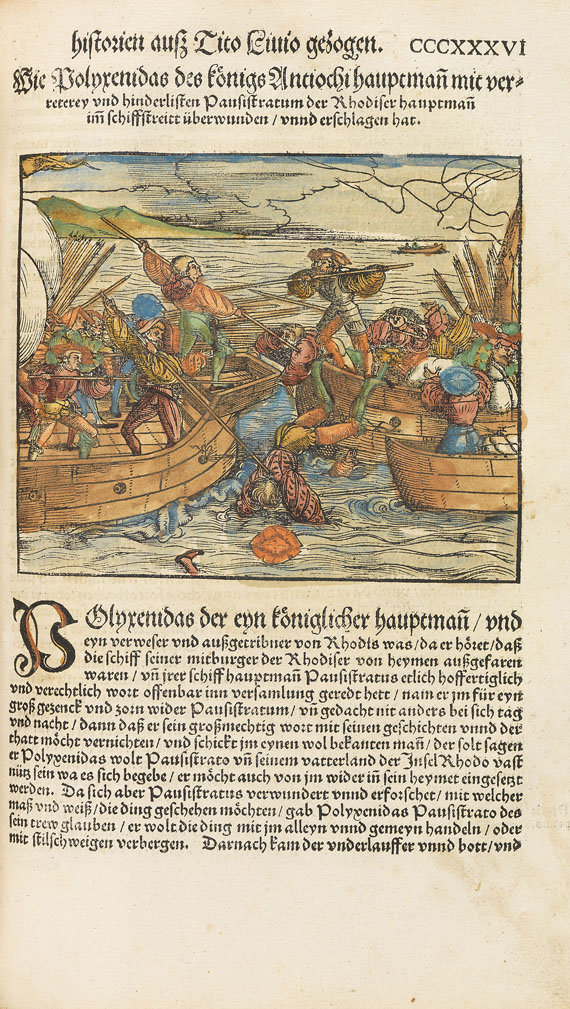 historien auß Tito Liuio gezogen. CCCXXXVI
Wie Polyxenidas des königs Antiochi hauptmañ mit ver-
reterey vnd hinderlisten Pausistratum der Rhodiser hauptmañ
im̃ schiffstreitt überwunden / vnnd erschlagen hat.
POlyxenidas der eyn königlicher hauptmañ / vnd
eyn verweser vnd außgetribner von Rhodis was / da er höret / daß
die schiff seiner mitburger der Rhodiser von heymen außgefaren
waren / vñ jrer schiff hauptmañ Pausistratus etlich hoffertiglich
vnd verechtlich wort offenbar inn versamlung geredt hett / nam er jm für eyn
groß gezenck vnd zorn wider Pausistratum / vñ gedacht nit anders bei sich tag
vnd nacht / dann daß er sein großmechtig wort mit seinen geschichten vnnd der
thatt möcht vernichten / vnd schickt jm eynen wol bekanten mañ / der solt sagen
er Polyxenidas wolt Pausistrato vñ seinem vatterland der Insel Rhodo vast
nütz sein wa es sich begebe / er möcht auch von jm wider iñ sein heymet eingesetzt
werden. Da sich aber Pausistratus verwundert vnnd erforschet / mit welcher
maß vnd weiß / die ding geschehen möchten / gab Polyxenidas Pausistrato des
sein trew glauben / er wolt die ding mit jm alleyn vnnd gemeyn handeln / oder
mit stilschweigen verbergen. Darnach kam der vnderlauffer vnnd bott / vnd